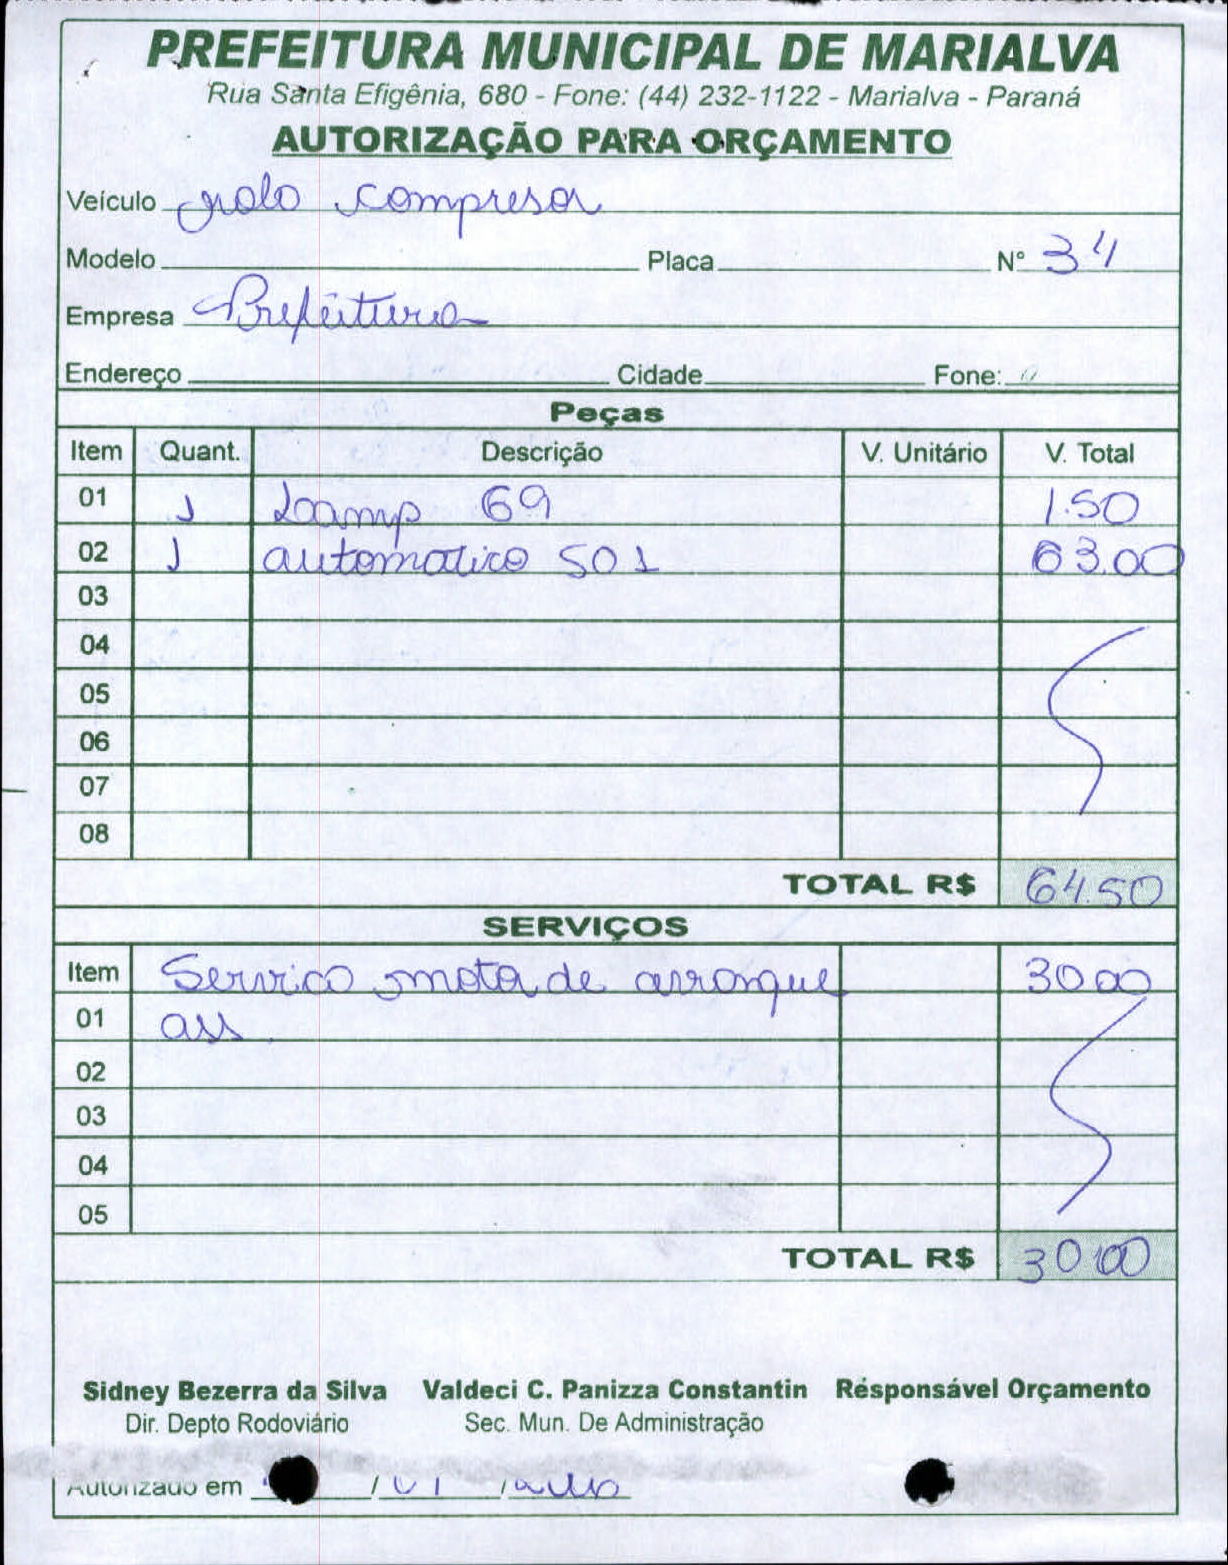 PREFEITURA MUNICIPAL DE MARIALVA
Rua Santa Efigênia, 680 - Fone: (44) 232-1122 - Marialva - Paraná
AUTORIZAÇÃO PARA ORÇAMENTO
Veículo rolo compresor
Modelo Placa Nº 34
Empresa Prefeitura
Endereço Cidade Fone:
Peças
Item Quant. Descrição V. Unitário V. Total
01 1 Lamp 69 1.50
02 1 automatico 501 63.00
03
04
05
06
07
08
TOTAL R$ 64.50
SERVIÇOS
Item Servico motor de arranque 30 00
01 ass
02
03
04
05
TOTAL R$ 30 00
Sidney Bezerra da Silva Valdeci C. Panizza Constantin Responsável Orçamento
Dir. Depto Rodoviário Sec. Mun. De Administração
Autorizado em / 01 /